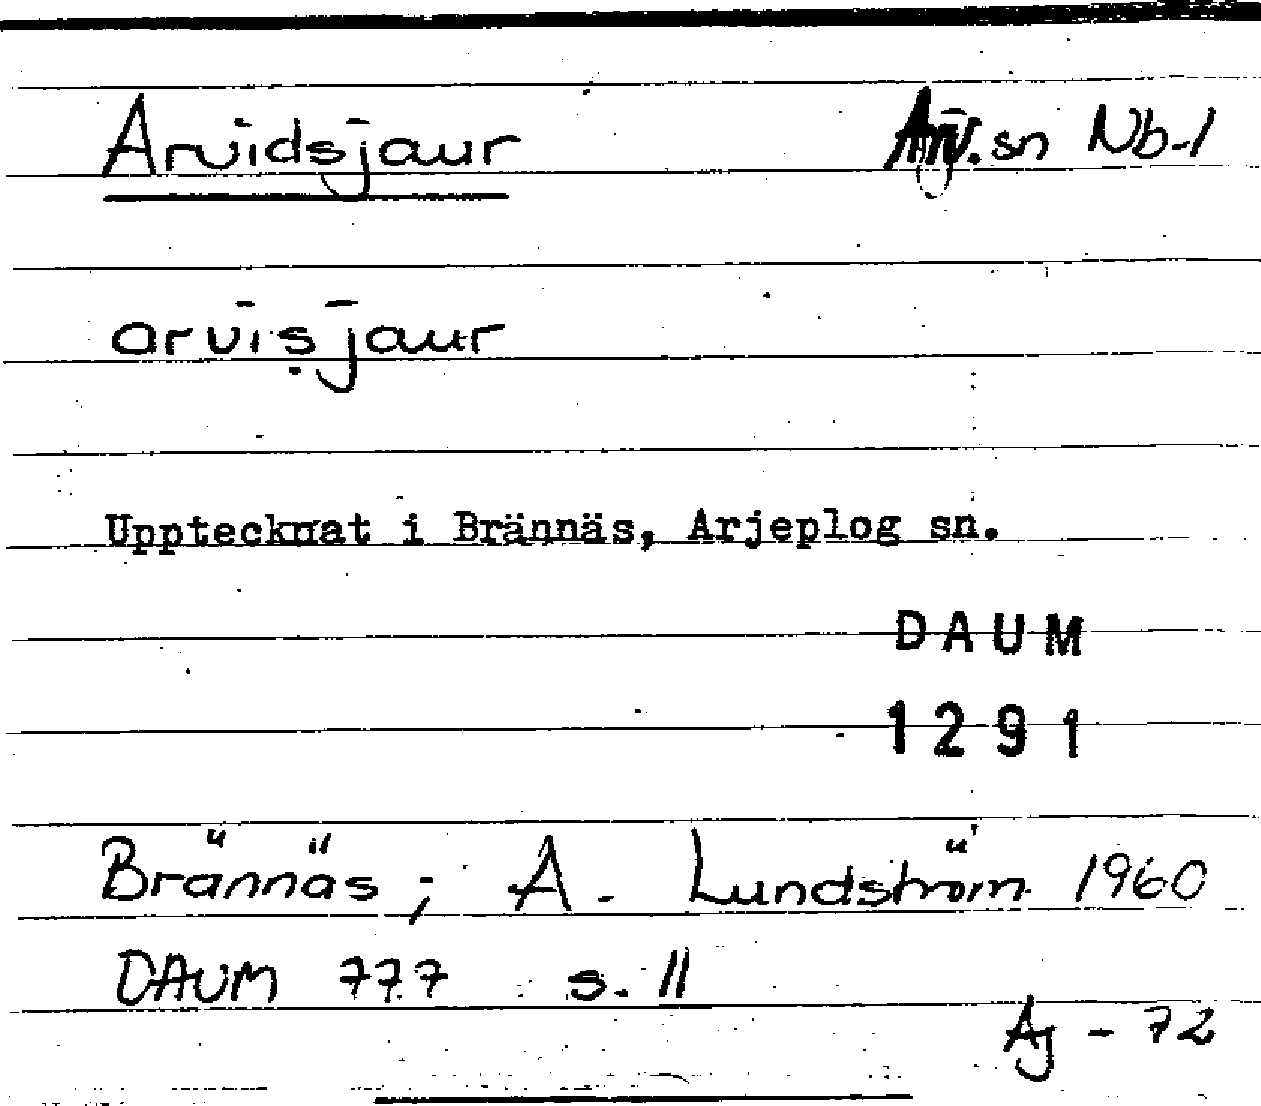 Arvidsjaur Arv. sn Nb-l
arvisjaur
Upptecknat i Brännäs, Arjeplog sn.
DAUM
1291
Brännäs; A. Lundström 1960
DAUM 777 s. 11
Aj - 72